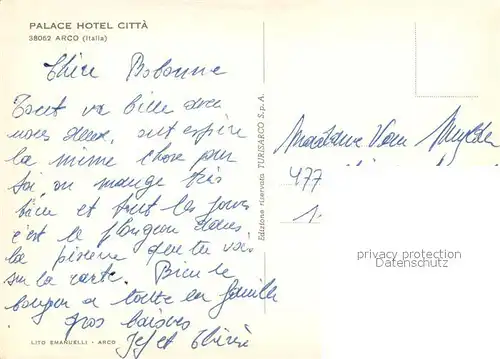 PALACE HOTEL CITTÀ
38062 ARCO (Italia)
Chère Bobonne
Tout va bille chez
nous deux, ont espère
la même chose pour
toi, on mange très
bien et tout les jours
c'est le plongeon dans
la piscine que tu vois
sur la carte. Bien le
bonjour a toute la famille
gros baises
Jef et Thérèse
LITO EMANUELLI - ARCO
Edizione riservata TURISARCO S.p.A.
Madame Van
477
1.
privacy protection
Datenschutz